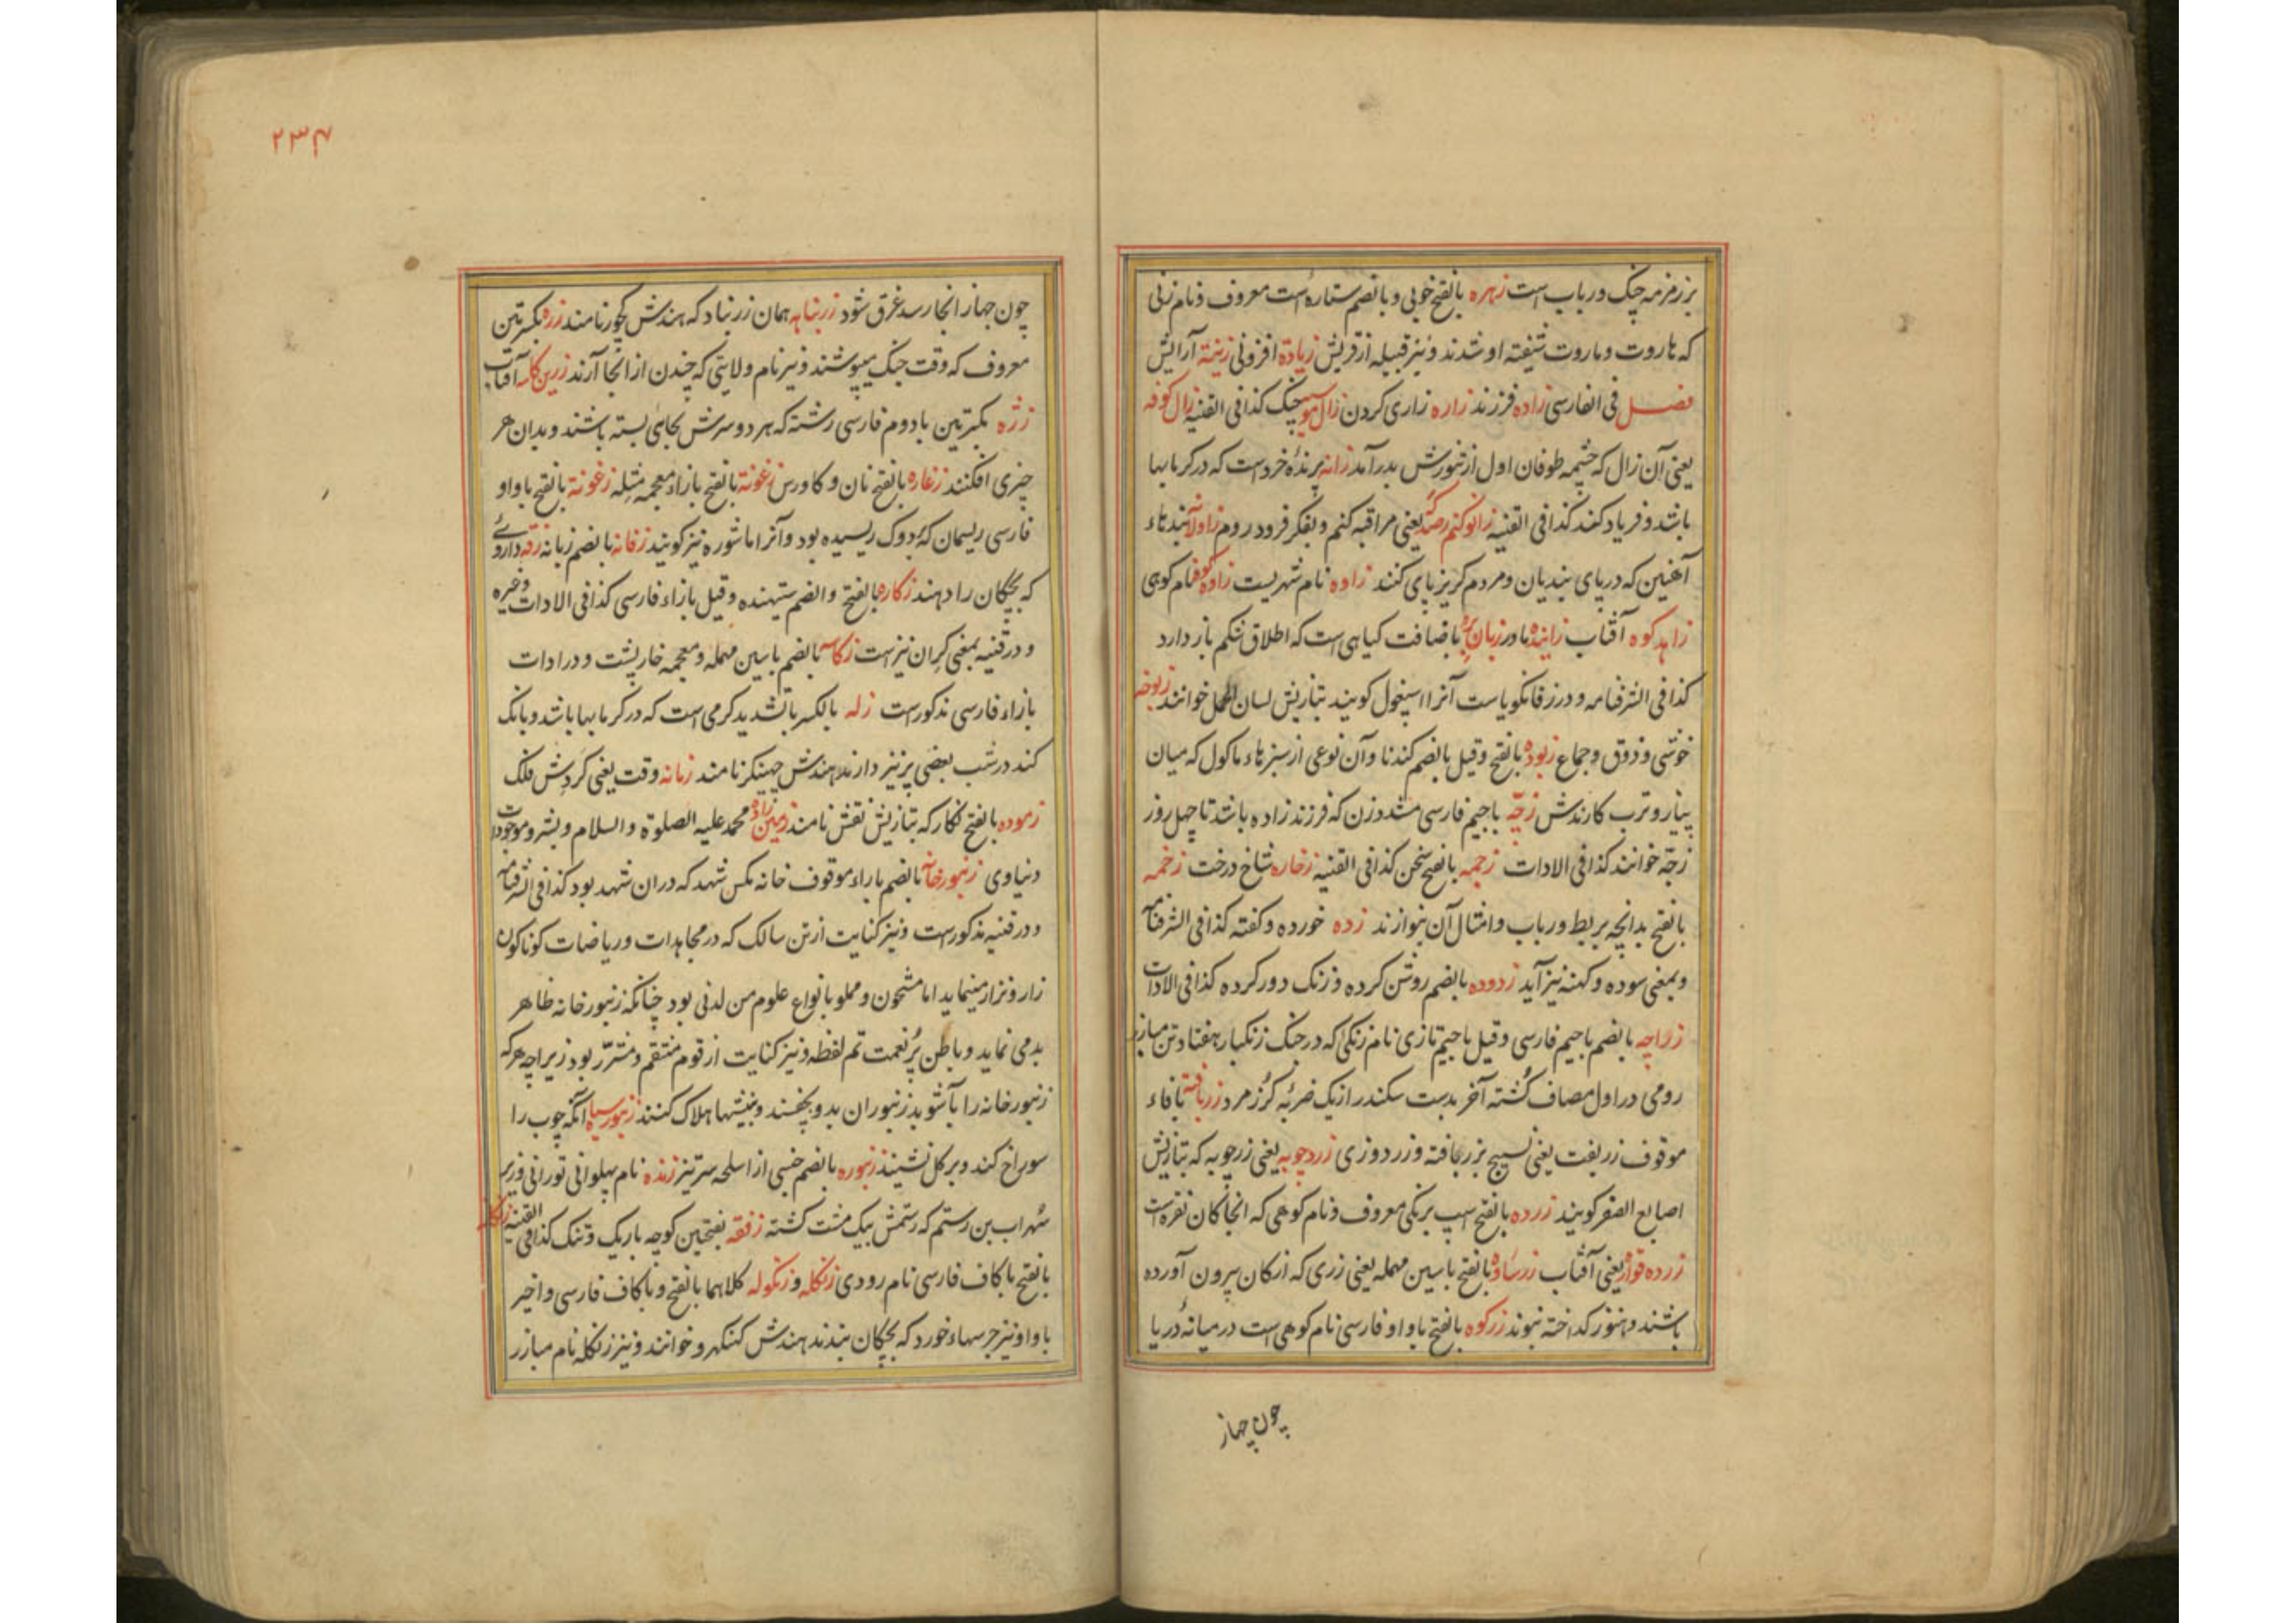 بزر مزمه چنک و رباب است زهره بالفتح خوبی و بالضم ستاره است معروف و نام زنی
که هاروت و ماروت شیفته او شدند و نیز قبیله از قریش زیادة افزونی زینة آرایش
فصل فی الفارسی زاده فرزند زاره زاری کردن زال موسیه چنک کذا فی القنیه زال کوفه
یعنی آن زال که چشمه طوفان اول از تنورش بدر آمد زانه پرنده خرد است که در کرمابها
باشد و فریاد کند کذا فی القنیه زانو کنم رصد یعنی مراقبه کنم و بفکر فرود روم زاولانه بندهاء
آهنین که در پای بندیان و مردم کریز پای کنند زاوه نام شهریست زاوه کوه نام کوهی
زاهد کوه آفتاب زاینده مادر زبان بره باضافت کیاهی است که اطلاق شکم باز دارد
کذا فی الشرفنامه و در زفانکویاست آنرا اسپغول کویند بتازیش لسان الحمل خوانند زبوخه
خوشی و ذوق و جماع زبوده بالفتح و قیل بالضم کندنا و آن نوعی از سبزهاء ماکول که میان
پیاز و ترب کارندش زچه باجیم فارسی مشدد زن که فرزند زاده باشد تا چهل روز
زچه خوانند کذا فی الادات زجمه بالفتح سخن کذا فی القنیه زخاره شاخ درخت زخمه
بالفتح بدانچه بربط و رباب و امثال آن بنوازند زده خورده و کفته کذا فی الشرفنامه
و بمعنی سوده و کهنه نیز آید زدوده بالضم روشن کرده و زنک دور کرده کذا فی الادات
زراچه بالضم باجیم فارسی و قیل باجیم تازی نام زنکی که در جنک زنکبار هفتاد تن مبارز
رومی در اول مصاف کشته آخر بدست سکندر از یک ضربه کرز مرد زربافته بافاء
موقوف زربفت یعنی نسیج بزر بافته و زردوزی زردچوبه یعنی زرچوبه که بتازیش
اصابع الصفر کویند زرده بالفتح اسپ برنکی معروف و نام کوهی که آنجا کان نقره است
زرده قواره یعنی آفتاب زرساوه بالفتح باسین مهمله یعنی زری که از کان بیرون آورده
باشند و هنوز کداخته نبوند زرکوه بالفتح باواو فارسی نام کوهی است در میانه دریا
چون جهاز
۲۳۴
چون جهاز آنجا رسد غرق شود زرنباه همان زرنباد که هندش کچور نامند زره بکسرتین
معروف که وقت جنک بپوشند و نیز نام ولایتی که چندن از آنجا آرند زرین کاسه آفتاب
زژه بکسرتین بادوم فارسی رشته که هر دو سرش بجائی بسته باشند و بدان هر
چیزی افکنند زغاره بالفتح نان و کاورس زغونة بالفتح بازاء معجمه مثله زغونة بالفتح باواو
فارسی ریسمان که بدوک ریسیده بود و آنرا ماشوره نیز کویند زفانه بالضم زبانه زقه داروئ
که بچکان را دهند زکاره بالفتح والضم ستهنده و قیل بازاء فارسی کذا فی الادات وغیره
و در قنیه بمعنی کران نیز است زکاسه بالضم باسین مهمله و معجمه خارپشت و در ادات
بازاء فارسی مذکور است زله بالکسر بالتشدید کرمی است که در کرمابها باشد و بانک
کند در شب بعضی پر نیز دارند هندش جهینکر نامند زمانه وقت یعنی کردش فلک
زموده بالفتح نکار که بتازیش نقش نامند زمین زاده محمد علیه الصلوة والسلام و بشر و موجودات
دنیاوی زنبورخانه بالضم باراء موقوف خانه مکس شهد که دران شهد بود کذا فی الشرفنامه
و در قنیه مذکور است و نیز کنایت از تن سالک که در مجاهدات و ریاضات کوناکون
زار و نزار مینماید اما مشحون و مملو بانواع علوم من لدنی بود چنانکه زنبور خانه ظاهر
بد می نماید و باطن پر نعمت تم لفظه و نیز کنایت از قوم منتقم و متشرر بود زیراچه هر که
زنبور خانه را بآشوبد زنبوران بدو بچفسند و بنیشها هلاک کنند زنبور سیاه آنکه چوب را
سوراخ کند و بر کل نشیند زنبوره بالضم جنسی از اسلحه سرتیز زنده نام پهلوانی تورانی وزیر
سهراب بن رستم که رستمش بیک مشت کشته زنقه بفتحین کوچه باریک و تنک کذا فی القنیه زنکانه
بالفتح باکاف فارسی نام رودی زنکله و زنکوله کلاهما بالفتح و باکاف فارسی و اخیر
باواو نیز جرسهاء خورد که بچکان بندند هندش کنکهرو خوانند و نیز زنکله نام مبارز